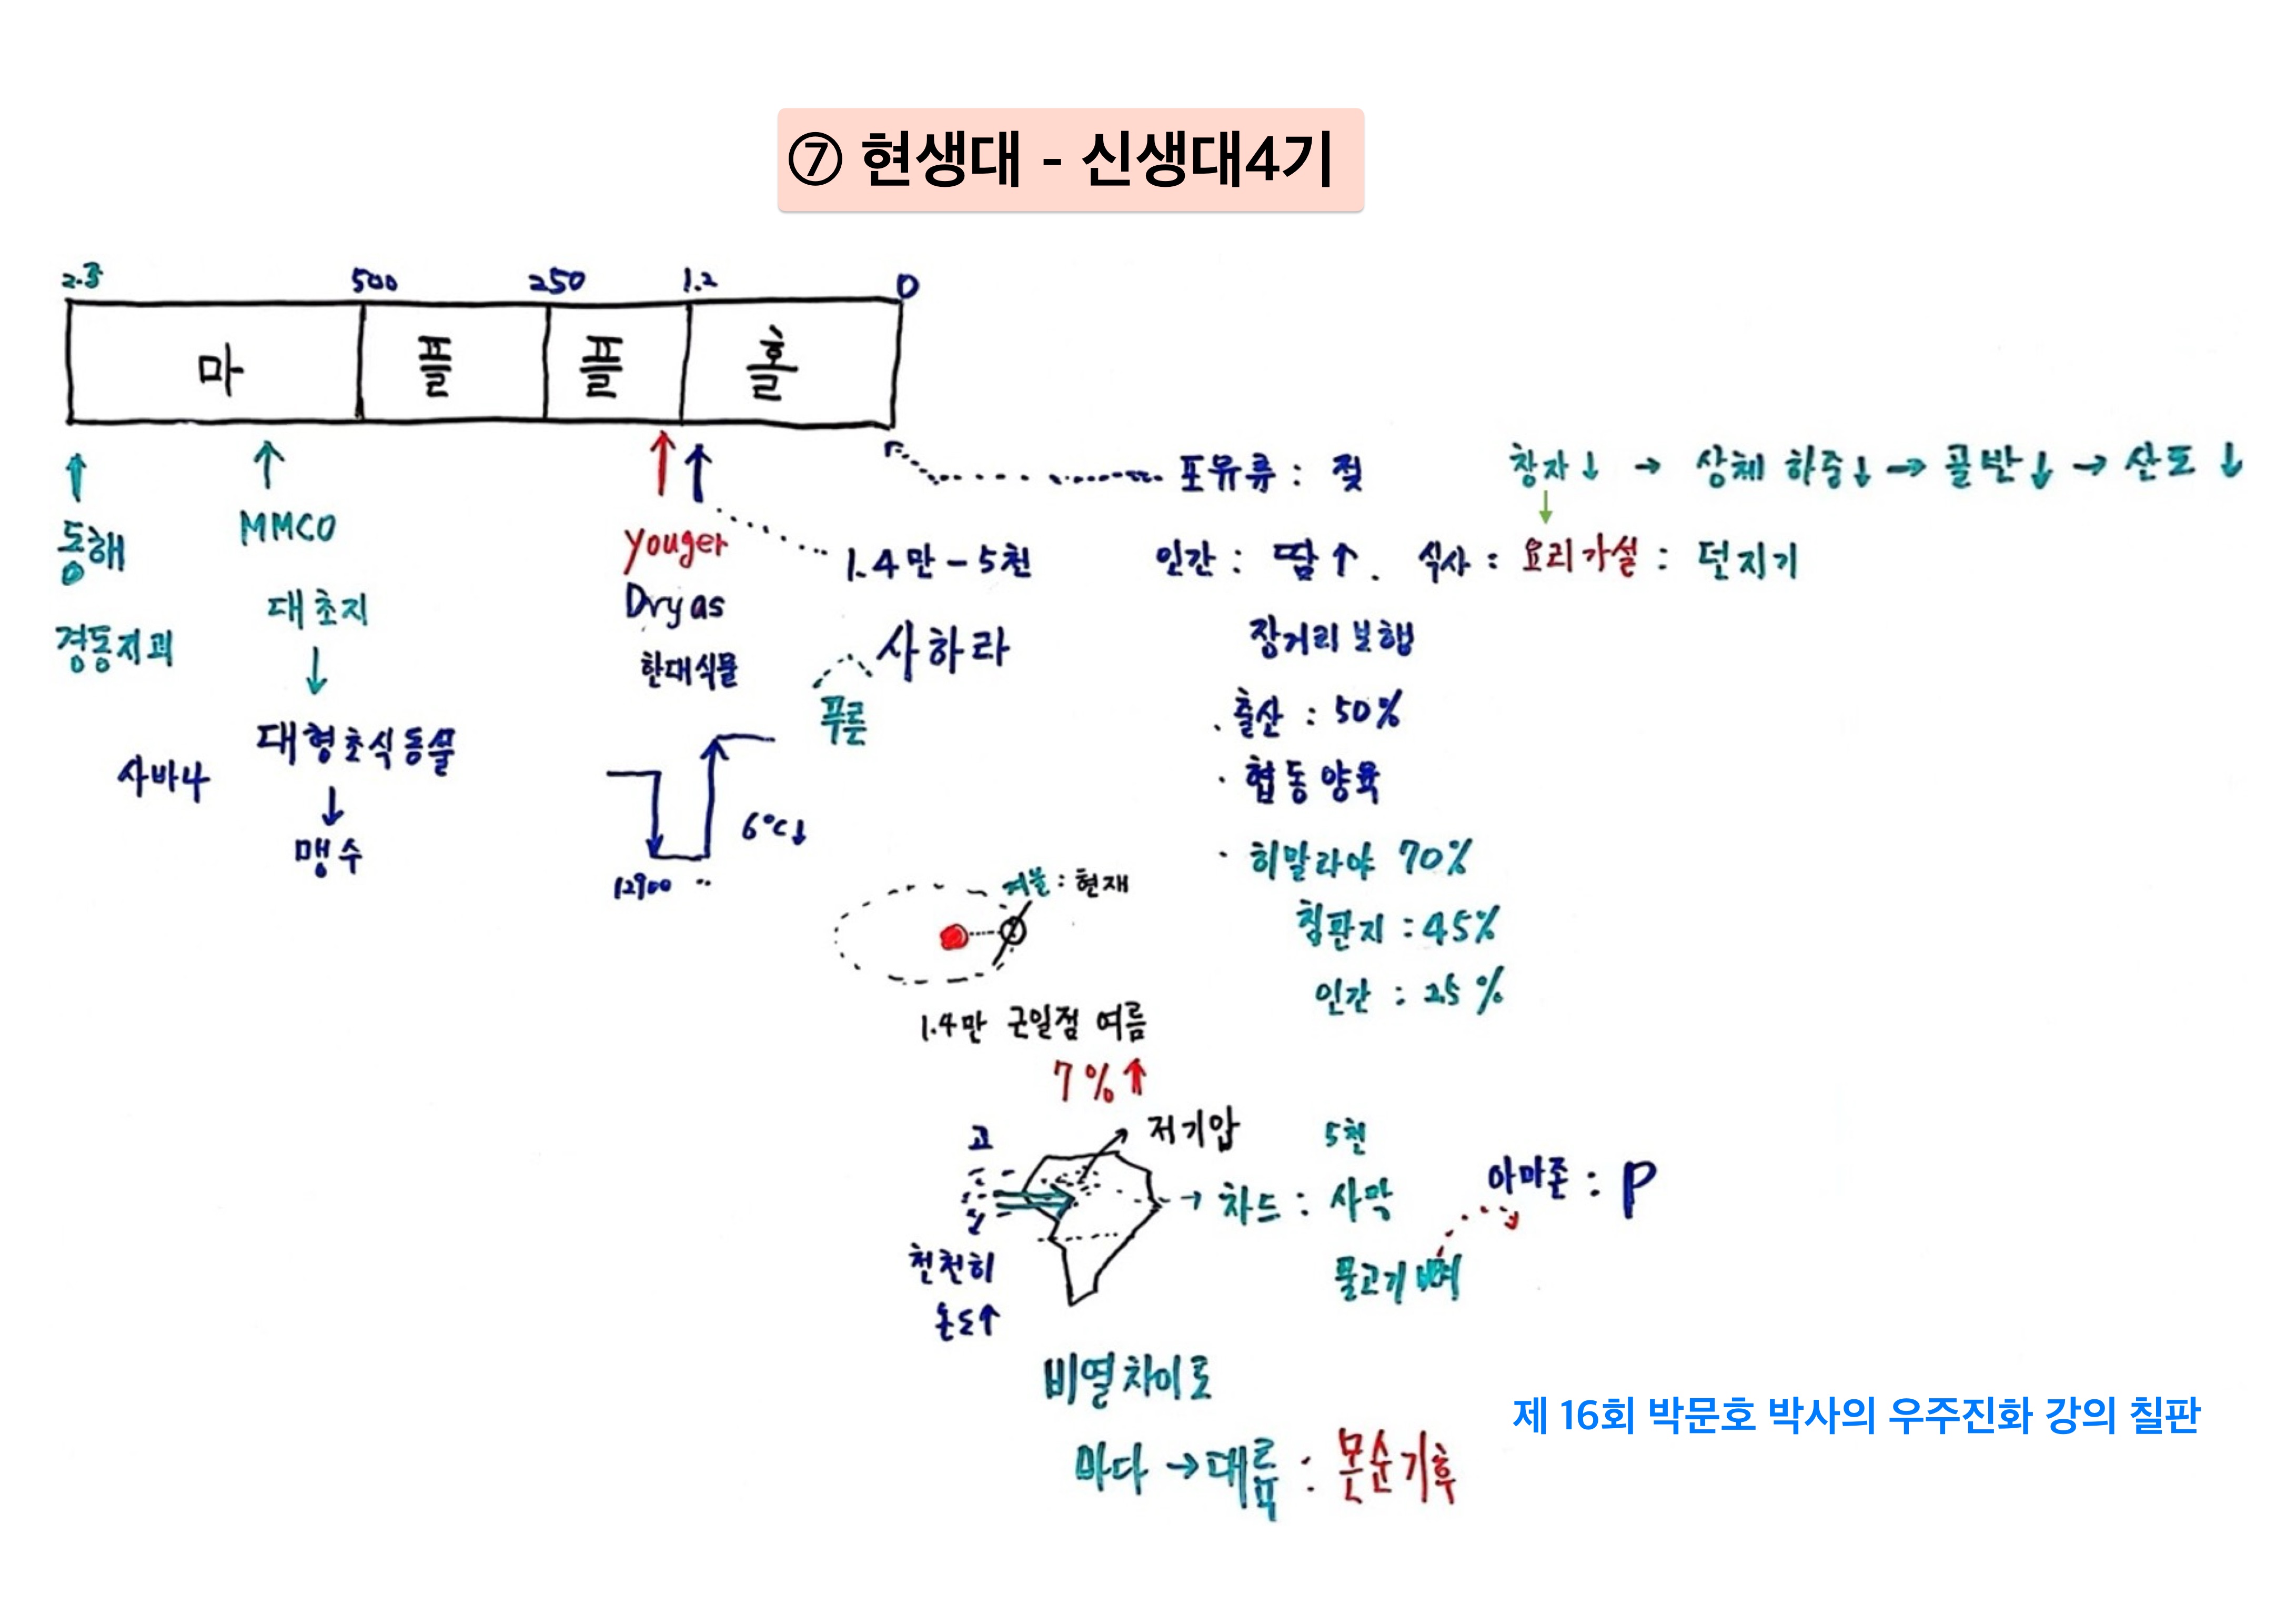 ⑦ 현생대 - 신생대4기
2.3 500 250 1.2 0
마 플 플 홀
동해
경동지괴
MMCO
대초지
↓
대형초식동물
↓
맹수
사바나
Youger
Dryas
한대식물
6°C↓
12900
1.4만-5천
사하라
푸른
포유류 : 젖
창자↓ → 상체 하중↓ → 골반↓ → 산도↓
인간 : 땀↑. 식사 : 요리가설 : 던지기
장거리 보행
· 출산 : 50%
· 협동양육
· 히말라야 70%
침판지 : 45%
인간 : 25%
: 현재
1.4만 근일점 여름
7%↑
고
저기압
천천히
온도↑
→ 차드 : 사막
5천
물고기 뼈
아마존 : P
비열차이로
바다 → 대륙 : 몬순기후
제 16회 박문호 박사의 우주진화 강의 칠판